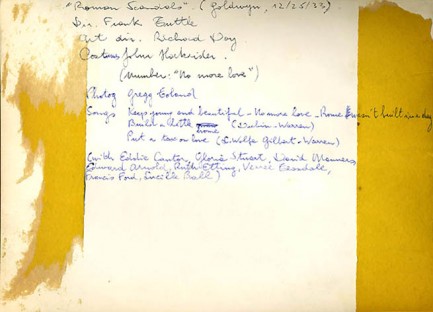 "Roman Scandals". (Goldwyn, 12/25/33)
Dir. Frank Tuttle
Art dir. Richard Day
Costums John Harkrider.
(number: "No more love")
Photog Gregg Toland
Songs Keep young and beautiful - No more love - Rome wasn't built in a day
Build a little home (Dubin - Warren)
Put a tax on love (L. Wolfe Gilbert - Warren)
(with Eddie Cantor, Gloria Stuart, David Manners,
Edward Arnold, Ruth Etting, Verree Teasdale,
Francis Ford, Lucille Ball)